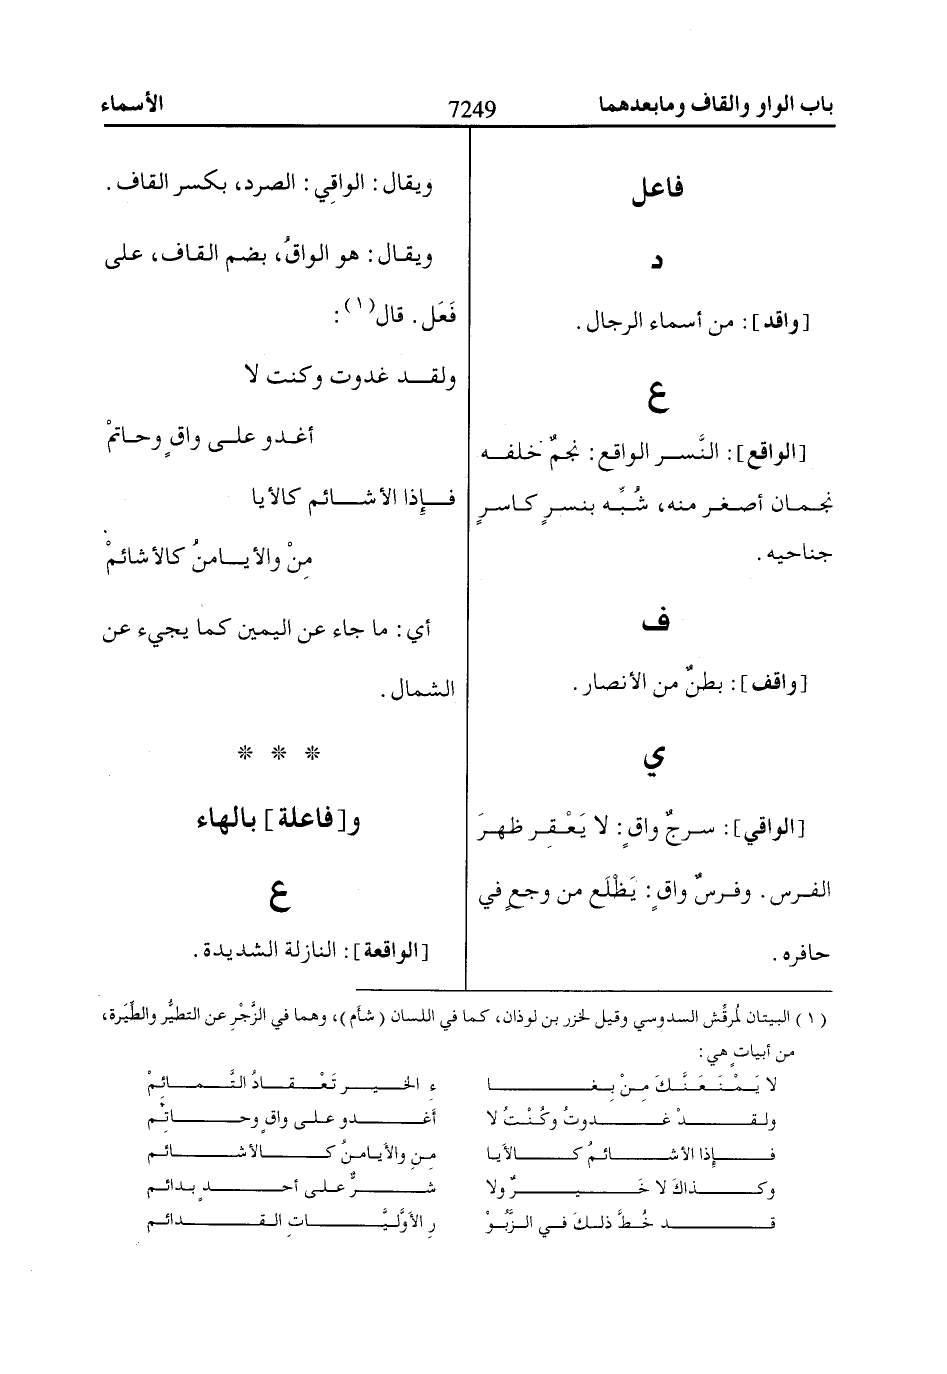 باب الواو والقاف ومابعدهما
7249
الأسماء
فاعل
د
[واقد]: من أسماء الرجال.
ع
[الواقع]: النَّسر الواقع: نجمٌ خلفه
نجمان أصغر منه، شُبِّه بنسرٍ كاسرٍ
جناحيه.
ف
[واقف]: بطنٌ من الأنصار.
ي
[الواقي]: سرجٌ واقٍ: لا يَعْقِر ظهرَ
الفرس. وفرسٌ واقٍ: يَظْلَع من وجعٍ في
حافره.
ويقال: الواقِي: الصرد، بكسر القاف.
ويقال: هو الواقُ، بضم القاف، على
فَعَل. قال(١):
ولقد غدوت وكنت لا
أغدو على واقٍ وحاتمْ
فإذا الأشائم كالأيا
مِنْ والأيامنُ كالأشائمْ
أي: ما جاء عن اليمين كما يجيء عن
الشمال.
* * *
و[فاعلة] بالهاء
ع
[الواقعة]: النازلة الشديدة.
(١) البيتان لمُرقَّش السدوسي وقيل لخزر بن لوذان، كما في اللسان (شأم)، وهما في الزَّجْرِ عن التطيُّر والطِّيَرة،
من أبياتٍ هي:
لا يَمْنَعَنَّكَ مِنْ بغا ءِ الخير تَعْقادُ التَّمائِمْ
ولقدْ غدوتُ وكُنْتُ لا أغدو على واقٍ وحاتم
فإذا الأشائمُ كالأيا مِنِ والأيامنُ كالأشائم
وكذاكَ لا خيرٌ ولا شرٌّ على أحدٍ بدائم
قد خُطَّ ذلكَ في الزَّبُوْ رِ الأوَّليَّاتِ القدائم